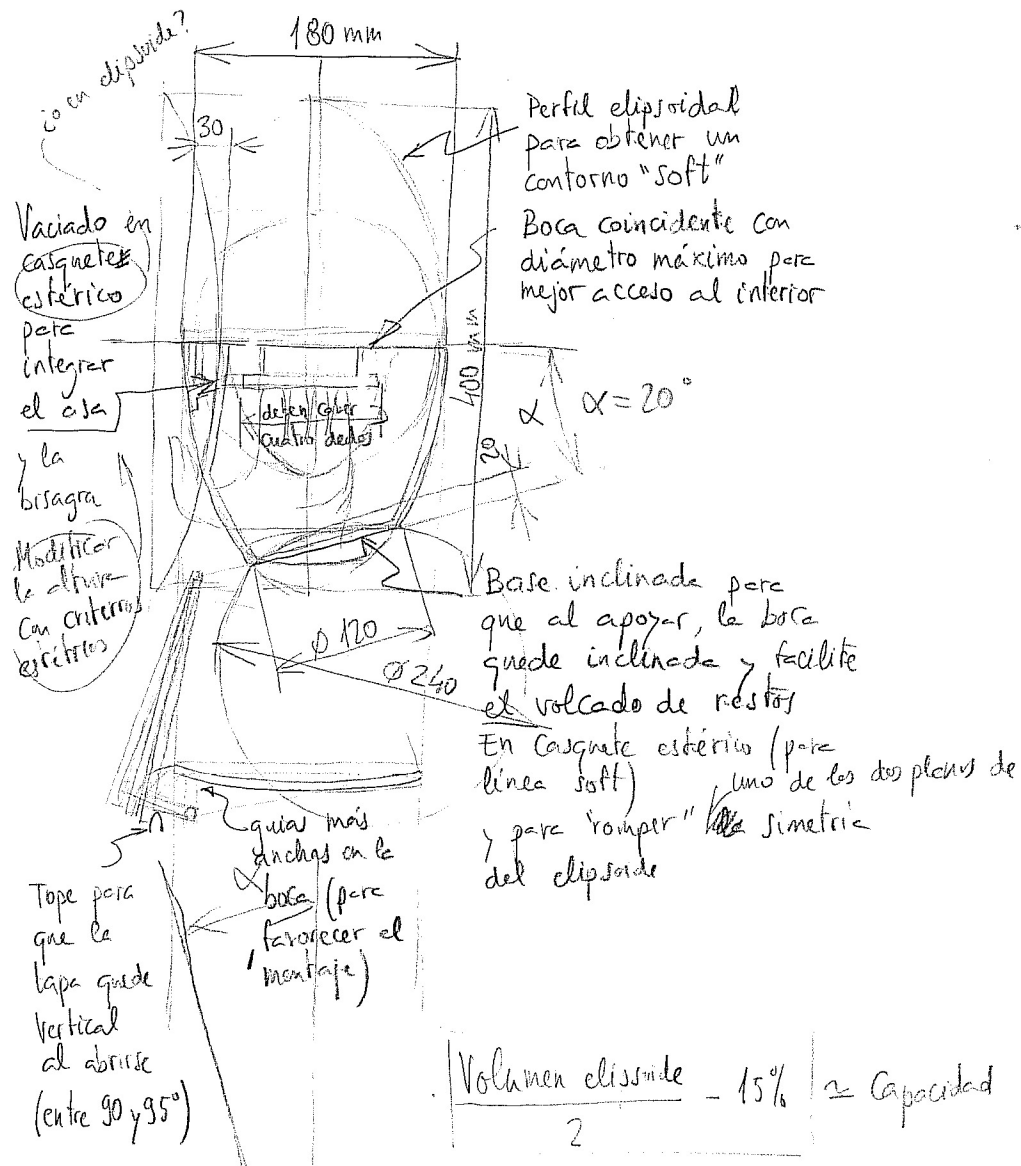 ¿o en elipsoide?
180 mm
30
Perfil elipsoidal
para obtener un
contorno "soft"
Boca coincidente con
diámetro máximo para
mejor acceso al interior
Vaciado en
casquete
esférico
para
integrar
el asa
y la
bisagra
Modificar
la altura
con criterios
estéticos
deben caber
cuatro dedos
400 mm
α
α = 20°
20
Base inclinada para
que al apoyar, la boca
quede inclinada y facilite
el volcado de restos
En Casquete esférico (para
línea soft)
y para "romper" uno de los dos planos de
simetría
del elipsoide
Ø 120
Ø 240
guías más
anchas en la
boca (para
favorecer el
montaje)
α
Tope para
que la
tapa quede
vertical
al abrirse
(entre 90 y 95°)
Volumen elissoide
2
- 15% ≃ Capacidad